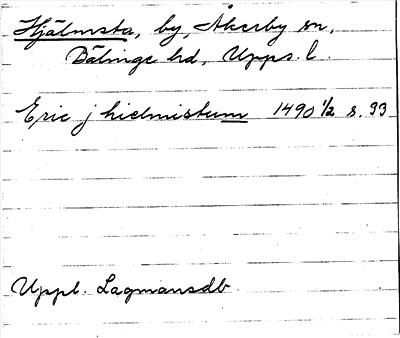 Hjälmsta, by, Åkerby sn,
Bälinge hd, Upps l.
Eric j hielmistum 1490 1/2 s. 33
Uppl. Lagmansdb